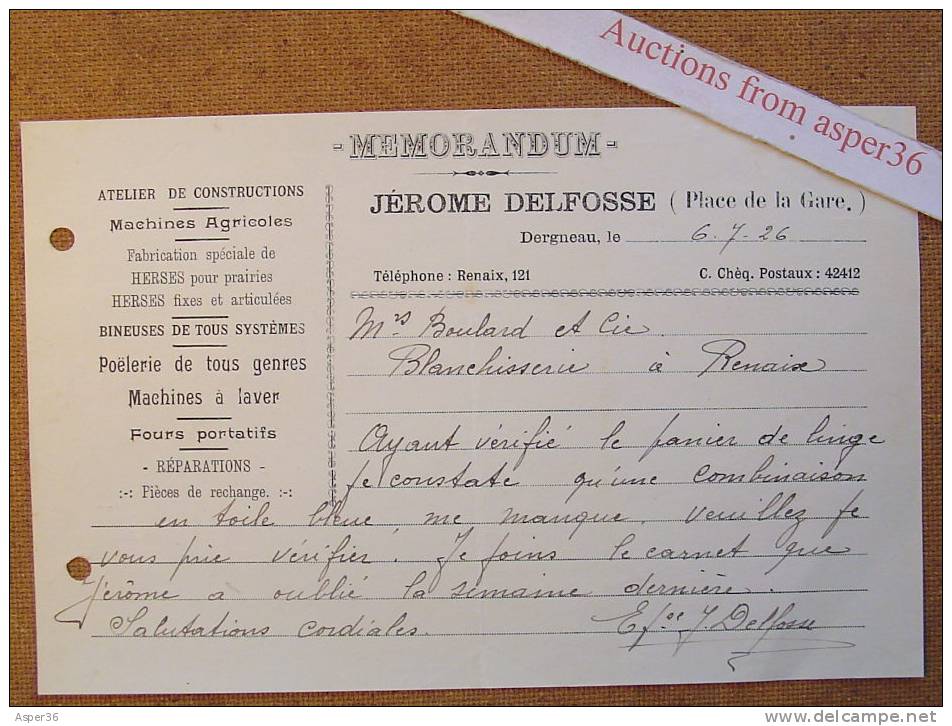 Auctions from asper36
- MEMORANDUM -
ATELIER DE CONSTRUCTIONS
Machines Agricoles
Fabrication spéciale de
HERSES pour prairies
HERSES fixes et articulées
BINEUSES DE TOUS SYSTÈMES
Poëlerie de tous genres
Machines à laver
Fours portatifs
- RÉPARATIONS -
:-: Pièces de rechange. :-:
JÉROME DELFOSSE ( Place de la Gare. )
Dergneau, le 6-7-26
Téléphone : Renaix, 121 C. Chèq. Postaux : 42412
Mrs Boulard et Cie.
Blanchisserie à Renaix
Ayant vérifié le panier de linge
je constate qu'une combinaison
en toile bleue, me manque. veuillez je
vous prie vérifier. Je joins le carnet que
Jérôme a oublié la semaine dernière.
Salutations cordiales. J. Delfosse
Asper36
http://www.delcampe.net